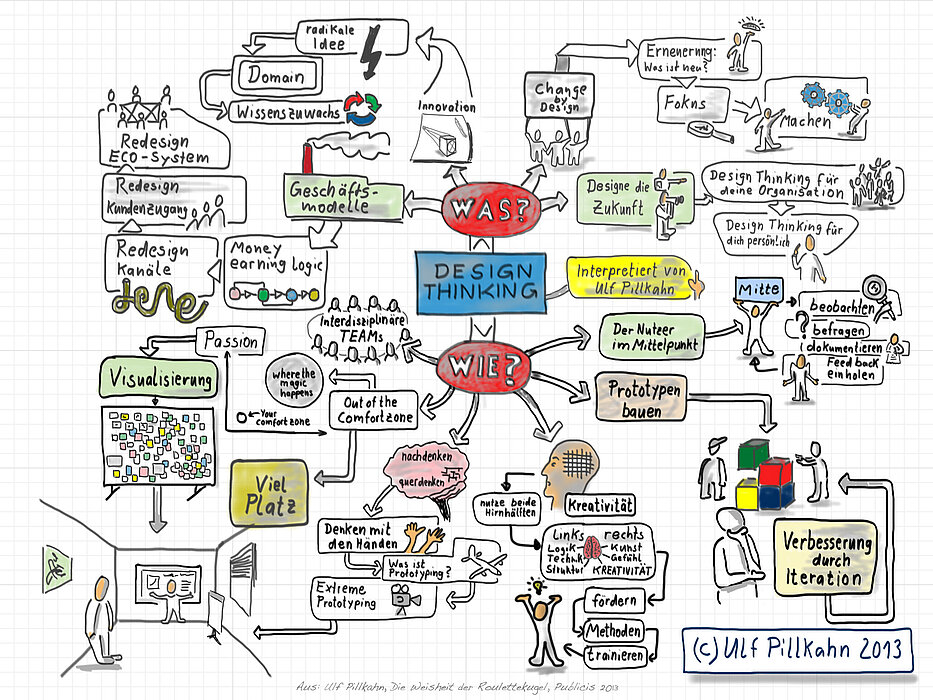 radikale
Idee
Domain
Wissenszuwachs
Innovation
Redesign
ECO-System
Redesign
Kundenzugang
Redesign
Kanäle
Geschäfts-
modelle
Money
earning Logic
Change
by
Design
Erneuerung:
Was ist neu?
Fokns
Machen
WAS?
Designe die
Zukunft
Design Thinking für
deine Organisation
Design Thinking für
dich persönlich
DESIGN
THINKING
Interpretiert von
Ulf Pillkahn
WIE?
Interdisziplinäre
TEAMs
Passion
Visualisierung
where the
magic
happens
Your
comfortzone
Out of the
Comfortzone
Viel
Platz
Der Nutzer
im Mittelpunkt
Mitte
beobachten
?
befragen
dokumentieren
Feedback
einholen
Prototypen
bauen
Verbesserung
durch
Iteration
nachdenken
querdenken
Denken mit
den Händen
Was ist
Prototyping?
Extreme
Prototyping
Kreativität
nutze beide
Hirnhälften
Links rechts
Logik Kunst
Technik Gefühl
Struktur KREATIVITÄT
fördern
Methoden
trainieren
(c) Ulf Pillkahn 2013
Aus: Ulf Pillkahn, Die Weisheit der Roulettekugel, Publicis 2013